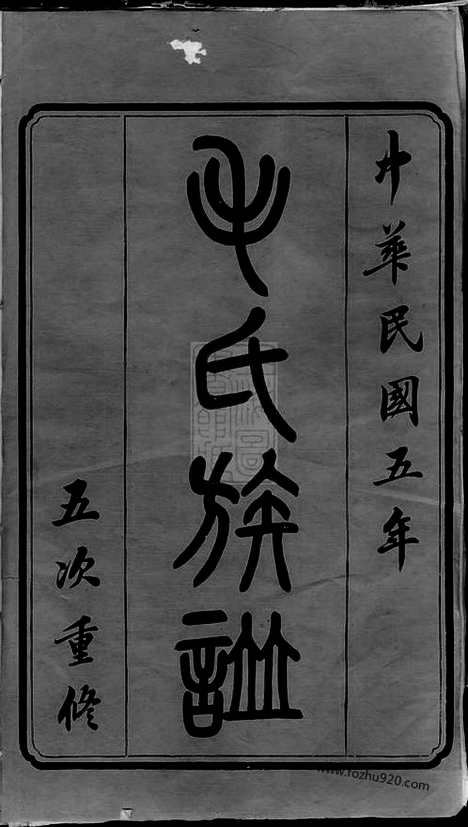 中華民國五年
毛氏族譜
五次重修
www.fozhu920.com